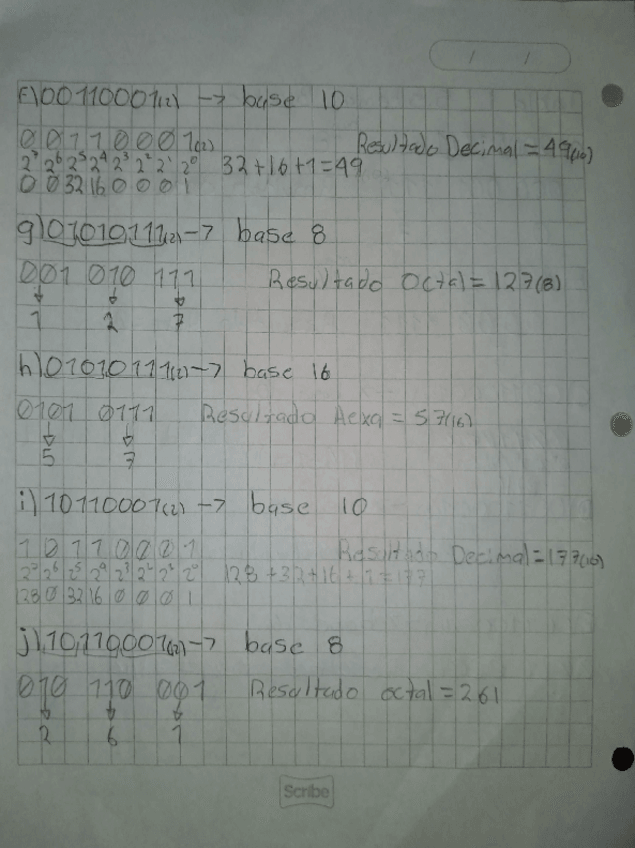 / /
f) 00110001(2) → base 10
0 0 1 1 0 0 0 1(2) Resultado Decimal = 49(10)
2⁷ 2⁶ 2⁵ 2⁴ 2³ 2² 2¹ 2⁰ 32+16+1=49
0 0 32 16 0 0 0 1
g) 01010111(2) → base 8
001 010 111 Resultado Octal = 127(8)
↓ ↓ ↓
1 2 7
h) 01010111(2) → base 16
0101 0111 Resultado Hexa = 57(16)
↓ ↓
5 7
i) 10110001(2) → base 10
1 0 1 1 0 0 0 1 Resultado Decimal = 177(10)
2⁷ 2⁶ 2⁵ 2⁴ 2³ 2² 2¹ 2⁰ 128+32+16+1=177
128 0 32 16 0 0 0 1
j) 10110001(2) → base 8
010 110 001 Resultado octal = 261
↓ ↓ ↓
2 6 1
Scribe